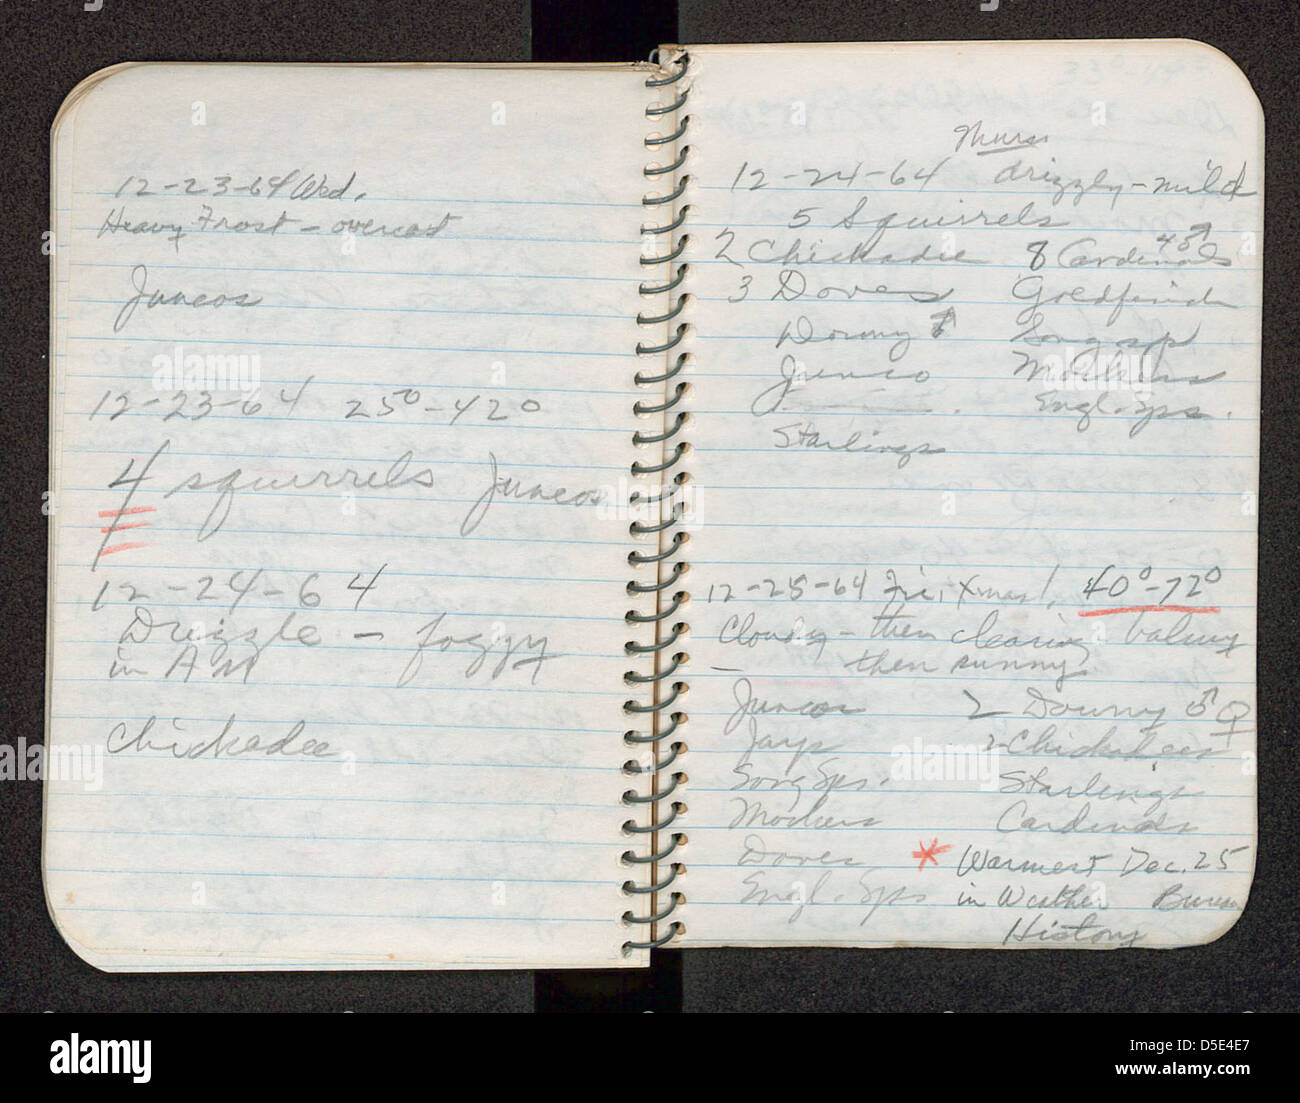 12-23-64 Wed.
Heavy Frost - overcast
Juncos
12-23-64 25°-42°
4 squirrels Juncos
12-24-64
Drizzle - foggy
in AM
Chickadee
Thurs
12-24-64 drizzly - mild
5 Squirrels
2 Chickadee 8 Cardinals 4♂
3 Doves Goldfinch
Downy ♂ Song sps
Junco Mockers
Engl. Sps.
Starlings
12-25-64 Fri, Xmas!, 40°-72°
Cloudy - then clearing balmy
then sunny
Juncos 2 Downy ♂ ♀
Jays 2 Chickadees
Song Sps. Starlings
Mockers Cardinals
Doves * Warmest Dec. 25
Engl. Sps in Weather Bureau
History
alamy
Image ID: D5E4E7
www.alamy.com